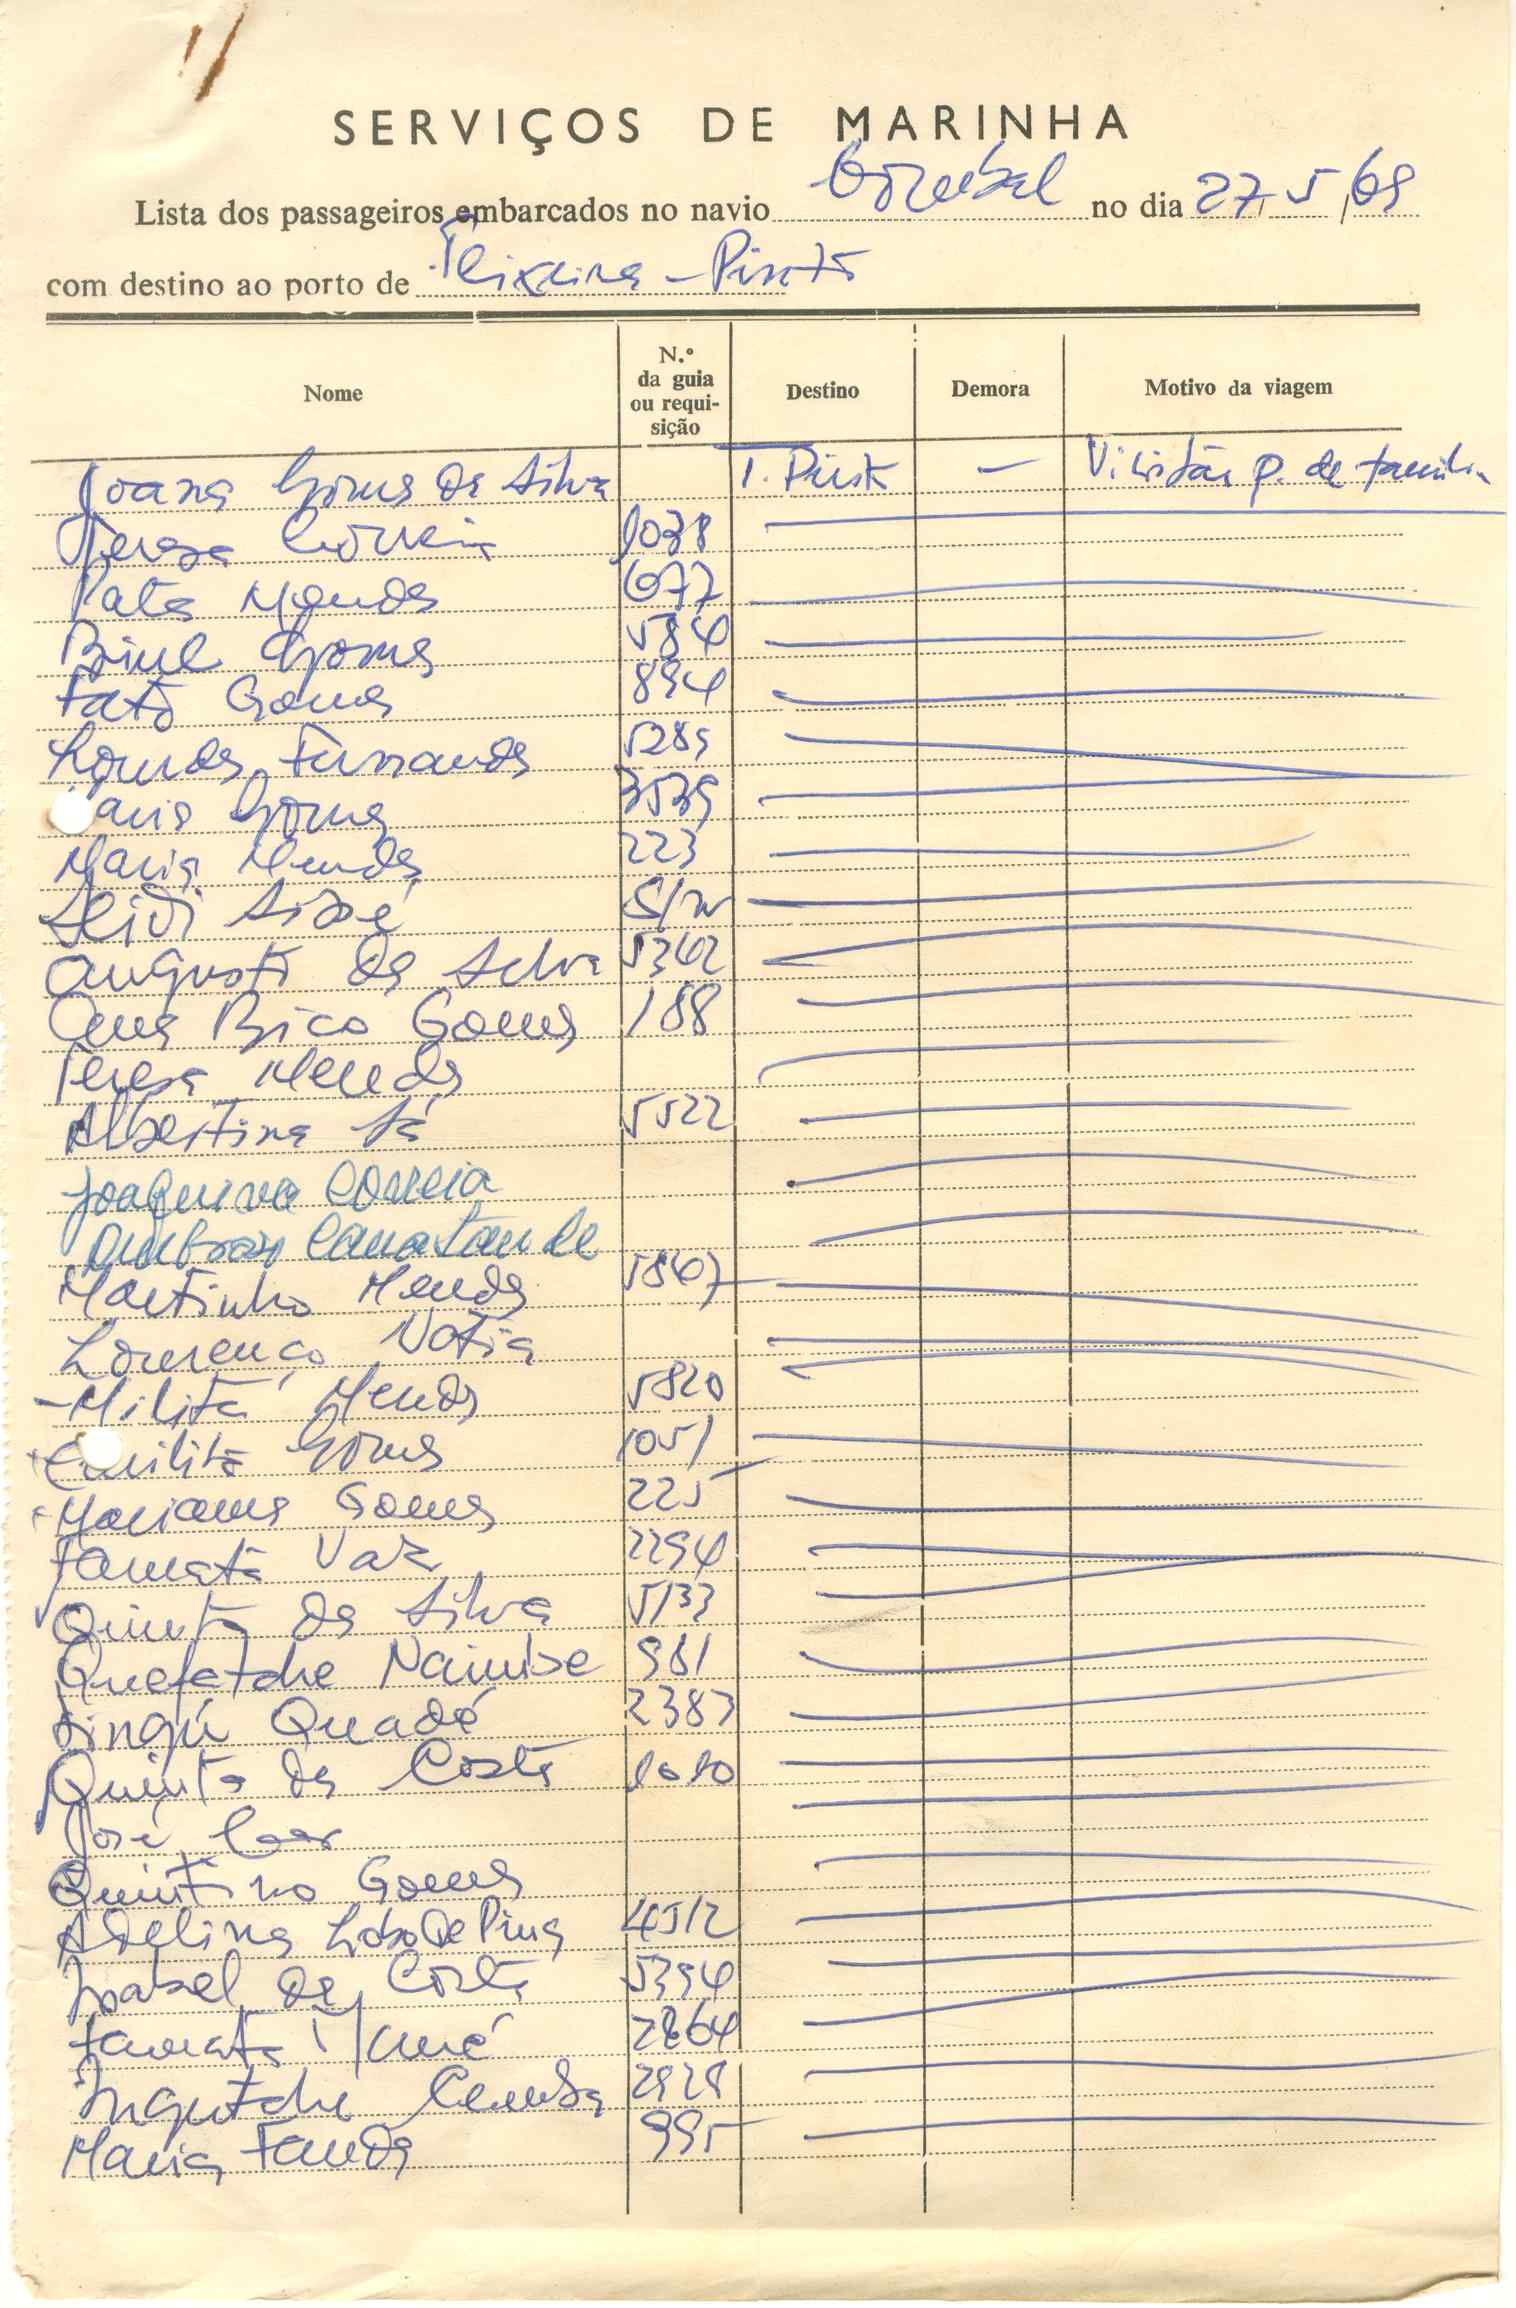 SERVIÇOS DE MARINHA
Lista dos passageiros embarcados no navio Corubal no dia 27, 5, 69
com destino ao porto de Teixeira - Pinto
Nome N.º da guia ou requi-sição Destino Demora Motivo da viagem
Joana Gomes da Silva T. Pinto — Visitar p. de familia
Teresa Correia 1038
Pata Mendes 677
Gomes 584
Fató Gomes 894
Lourdes Fernandes 5289
Gomes 3539
Maria Mendes 223
S/n
Augusto da Silva 5362
Ana Bico Gomes 188
Teresa Mendes
Albertina Sá 5522
Joaquina Correia
Martinho Mendes 5867
Lourenço
- Milita Mendes 5820
Emilita Gomes 1051
Mariama Gomes 225
Vaz 2294
Quinta da Silva 5133
981
2383
Quinta da Costa 1010
José
Quintino Gomes
Adelina Lobo de Pina 4512
Isabel da Costa 5394
2864
2928
Maria 995